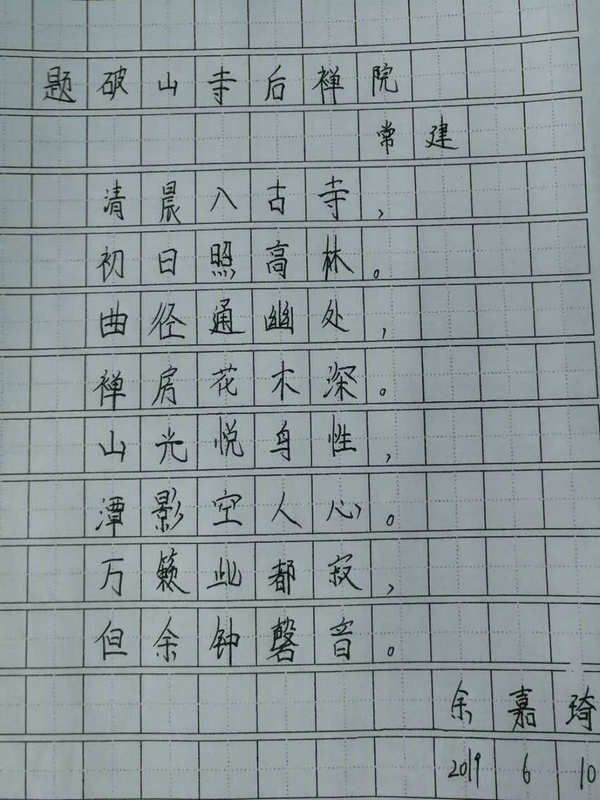 题破山寺后禅院
常建
清晨入古寺，
初日照高林。
曲径通幽处，
禅房花木深。
山光悦鸟性，
潭影空人心。
万籁此都寂，
但余钟磬音。
余嘉琦
2019 6 10